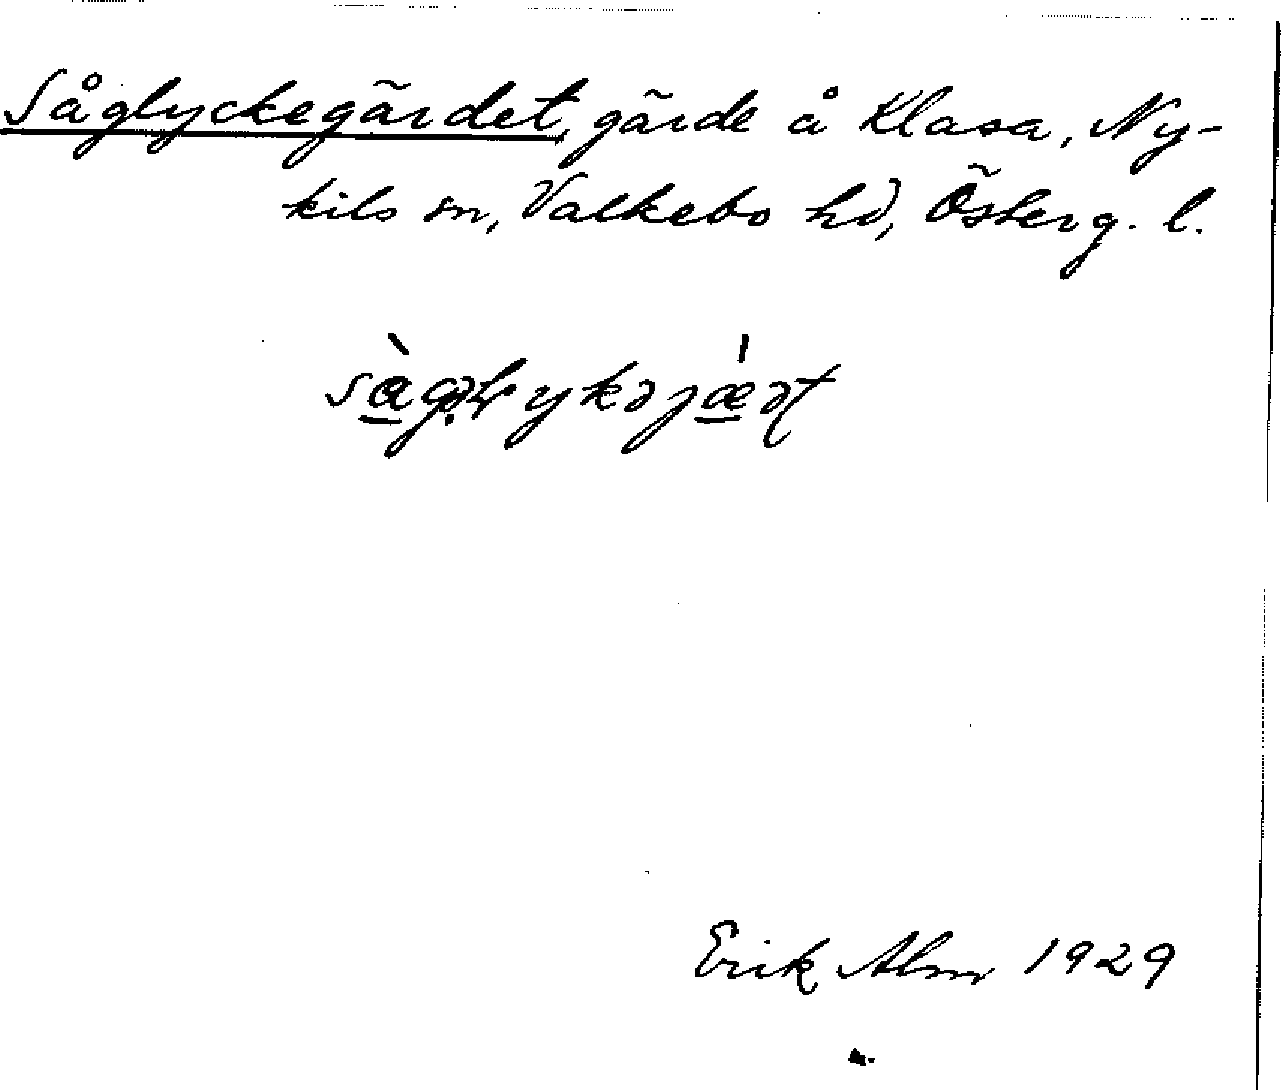 Såglyckegärdet, gärde å Klasa, Ny-
kils sn, Valkebo hd, Österg. l.
Erik Alm 1929